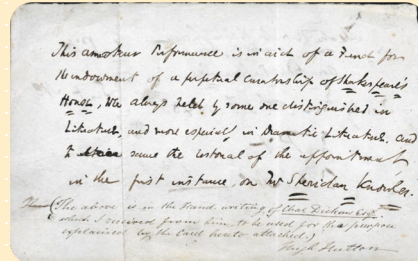 This amateur Performance is in aid of a Fund for
the endowment of a perpetual curatorship of Shakespeare's
House, to be always held by some one distinguished in
Literature, and more especially in Dramatic Literature. and
to secure the bestowal of the appointment
in the first instance, on Mr Sheridan Knowles.
(The above is in the Hand writing of Chas Dickens Esq.
which I received from him to be used for the purpose
explained by the Card hereto attached.)
Hugh Hutton